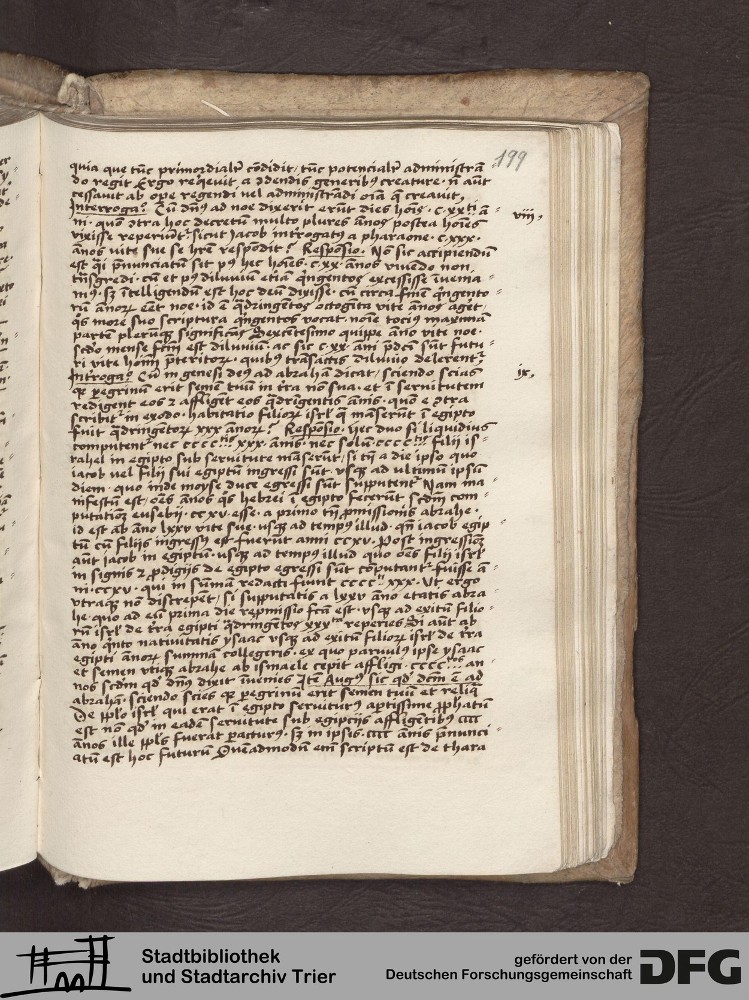 199
quia que tūc primordialr̄ cōdidit, tūc potencialr̄ administrā
do regit Ergo reqͥevit a ↄdendis generibꝰ creature · n̄ aūt
cessauit ab oꝑe regendi vel administrādi oīa q̄ creavit,
Interroga? Cū dn̄s ad noe dixerit · erūt dies hoīs · c · xxͭⁱ ā
viii.
ni · quō ↄtra hoc decretū multo plures ānos postea hoīes
vixisse reperiūtʳ sicut Jacob introgatꝰ a pharaone · c · xxx ·
ānos vite sue se hr̄e respōdit? Respōsio · Nō sic accipiendū
est qͣi p̄nunciatū sit pꝰ hec hoīes · c · xx · ānos vivēdo non
trāsgredi · cū et pꝰ diluviū etiā qͥngentos excessisse īvenia
mꝰ · sꝫ ītelligendū est hoc deū dixisse · cū circa finē qͥngento
rū ānoꝝ eēt noe · id ē qͣdringētos octogīta vite ānos ageret,
qͦs more suo scriptura qͥngentos vocat noīe tociꝰ maximā
partē plerūqꝫ significās Sexcētesimo quippe āno vite noe ·
scdo mense fcm̄ est diluviū · ac sic c · xx · āni p̄dcī sūt futu
ri vite hoīm p̄teritoꝝ · quibꝰ trāsactis diluvio delerentʳ
Introga? Cū in genesi deꝰ ad abrahā dicat, sciendo scias
ix.
qͩ ꝑegrinū erit semē tuū in t̄ra nō sua · et ī servitutem
redigent eos ⁊ affliget eos qͣdrigentis ānis · quō e ↄtra
scribitʳ in exodo · habitatio filioꝝ isrl̄ qͣ māserūt ī egipto
fuit qͣdringētoꝝ xxx ānoꝝ? Respōsio · hec duo si liquidius
computentʳ nec cccc · xxx · ānis · nec solū · cccc · filii is
rahel in egipto sub servitute māserūt, si tn̄ a die ipso quo
iacob vel filij sui egiptū ingressi sūt vsqꝫ ad ultimū ipsū
diem · quo inde moyse duce egressi sūt supputentʳ Nam ma
nifestū est, oēs ānos qͦs hebrei ī egipto fecerūt scdm̄ com
putatioꝫ eusebij · cc xv · esse · a primo tn̄ ꝓmissionis abrahe ·
id est ab āno lxxv vite sue · usqꝫ ad tempꝰ illud · qn̄ iacob egip
tū cū filijs ingressꝰ est fuerūt anni ccxv · Post ingressioꝫ
aūt Jacob in egiptū · usqꝫ ad tempꝰ illud quo oēs filij isrl̄
in signis ⁊ ꝓdigijs de egipto egressi sūt cōputantʳ fuisse ā
ni · ccxv · qui in sūmā redacti fiunt cccc · xxx · Ut ergo
vtraqꝫ nō discrepēt, si supputatis a lxxv āno etatis abra
he · quo ad eū prima die repmissio fcā est · vsqꝫ ad exitū filio
rū isrl̄ de t̄ra egipti qͣdringētos xxx reperies Si aūt ab
āno qͥnto nativitatis ysaac vsqꝫ ad exitū filioꝝ isrl̄ de t̄ra
egipti ānoꝝ summā collegeris · ex quo parvulꝰ ipse ysaac
et semen vtiqꝫ abrahe ab ismaele cepit affligi · cccc an
nos scdm̄ qd̄ dn̄s dixit īvenies Jtē Augꝰ sic qd̄ dcm̄ ē ad
abrahā · sciendo scies qͩ ꝑegrinū erit semen tuū et reliqͣ
De ppl̄o isrl̄ qui erat ī egipto servituꝰ aptissime ꝓphatū
est nō qd̄ in eadē servitute sub egiptijs affligētibꝰ cccc
ānos ille ppl̄s fuerat ꝑacturꝰ · sꝫ in ipsis · cccc ānis p̄nunci
atū est hoc futurū Quēadmodū em̄ scriptū est de thara
Stadtbibliothek
und Stadtarchiv Trier
gefördert von der
Deutschen Forschungsgemeinschaft
DFG